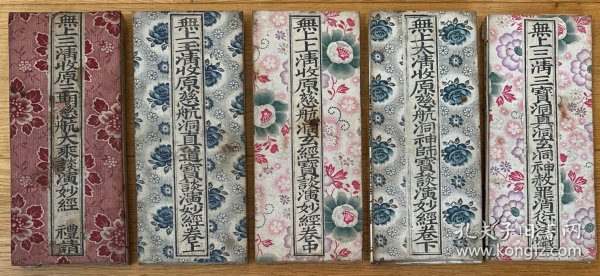 無上三清收原三朝慈航大乘談演妙經
禮請
無上玉清收原慈航洞真道寶談演妙經卷上
無上上清收原慈航洞玄經寶談演妙經卷中
無上太清收原慈航洞神師寶談演妙經卷下
無上三清三寶洞真洞玄洞神大羅消
孔夫子旧书网
www.kongfz.com